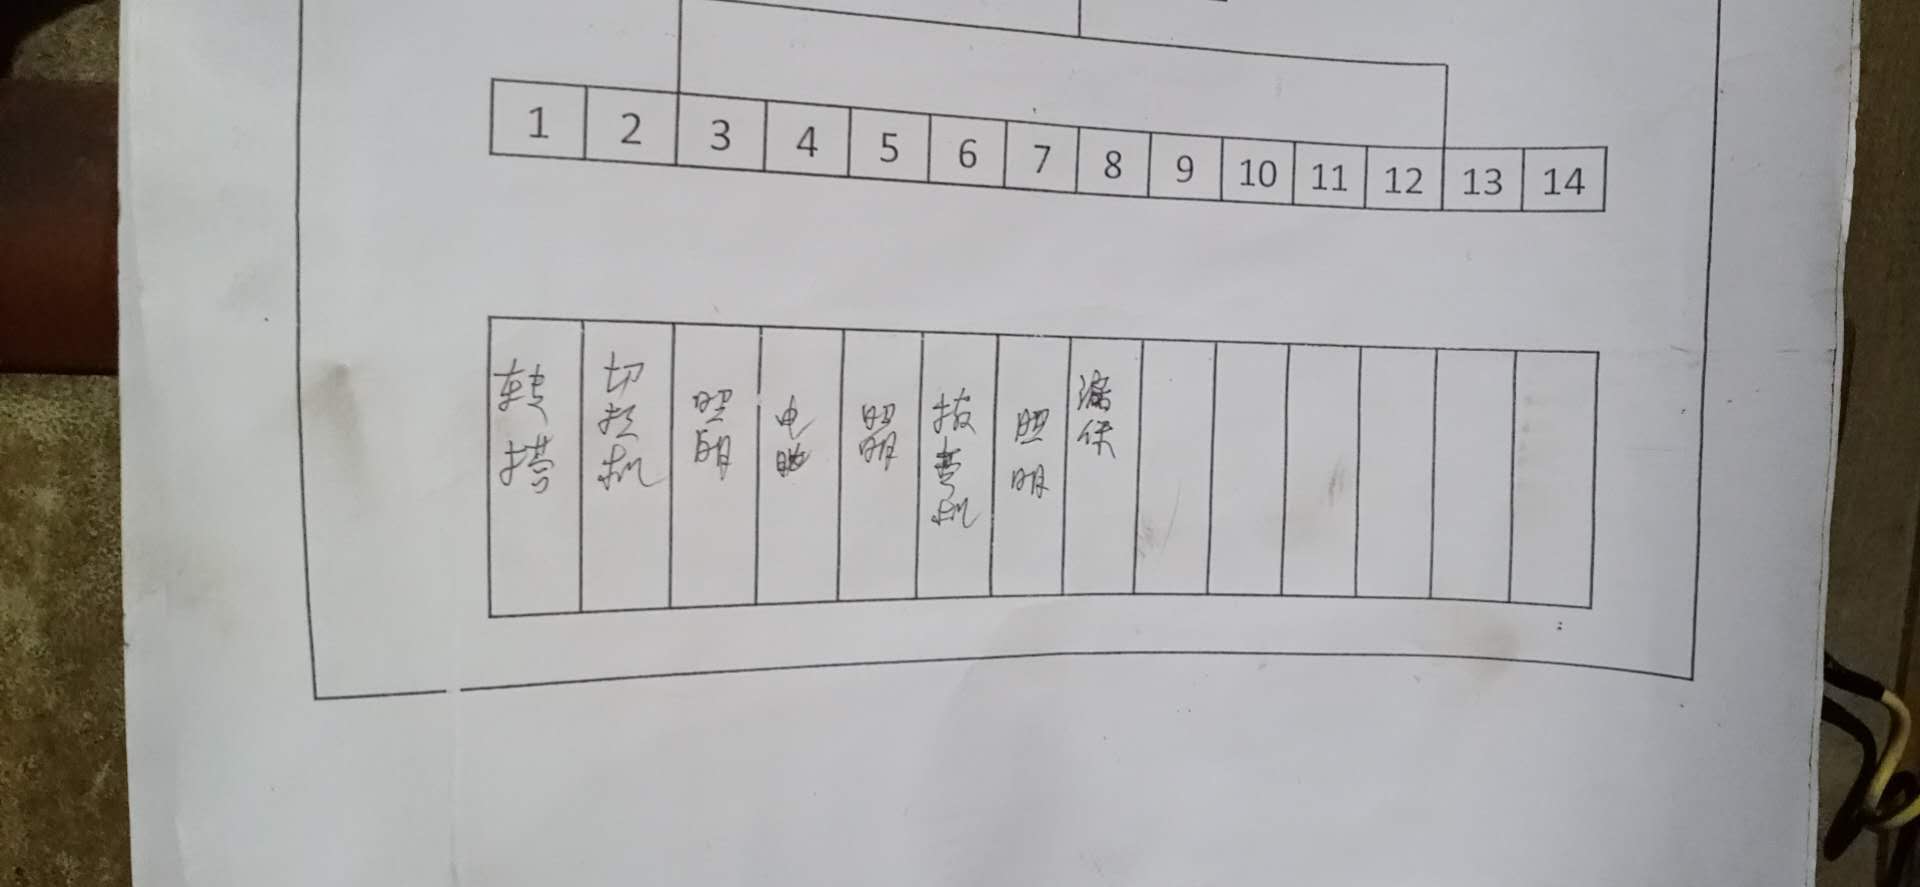 1 2 3 4 5 6 7 8 9 10 11 12 13 14
转塔
切割机
照明
电
照明
机
照明
漏保